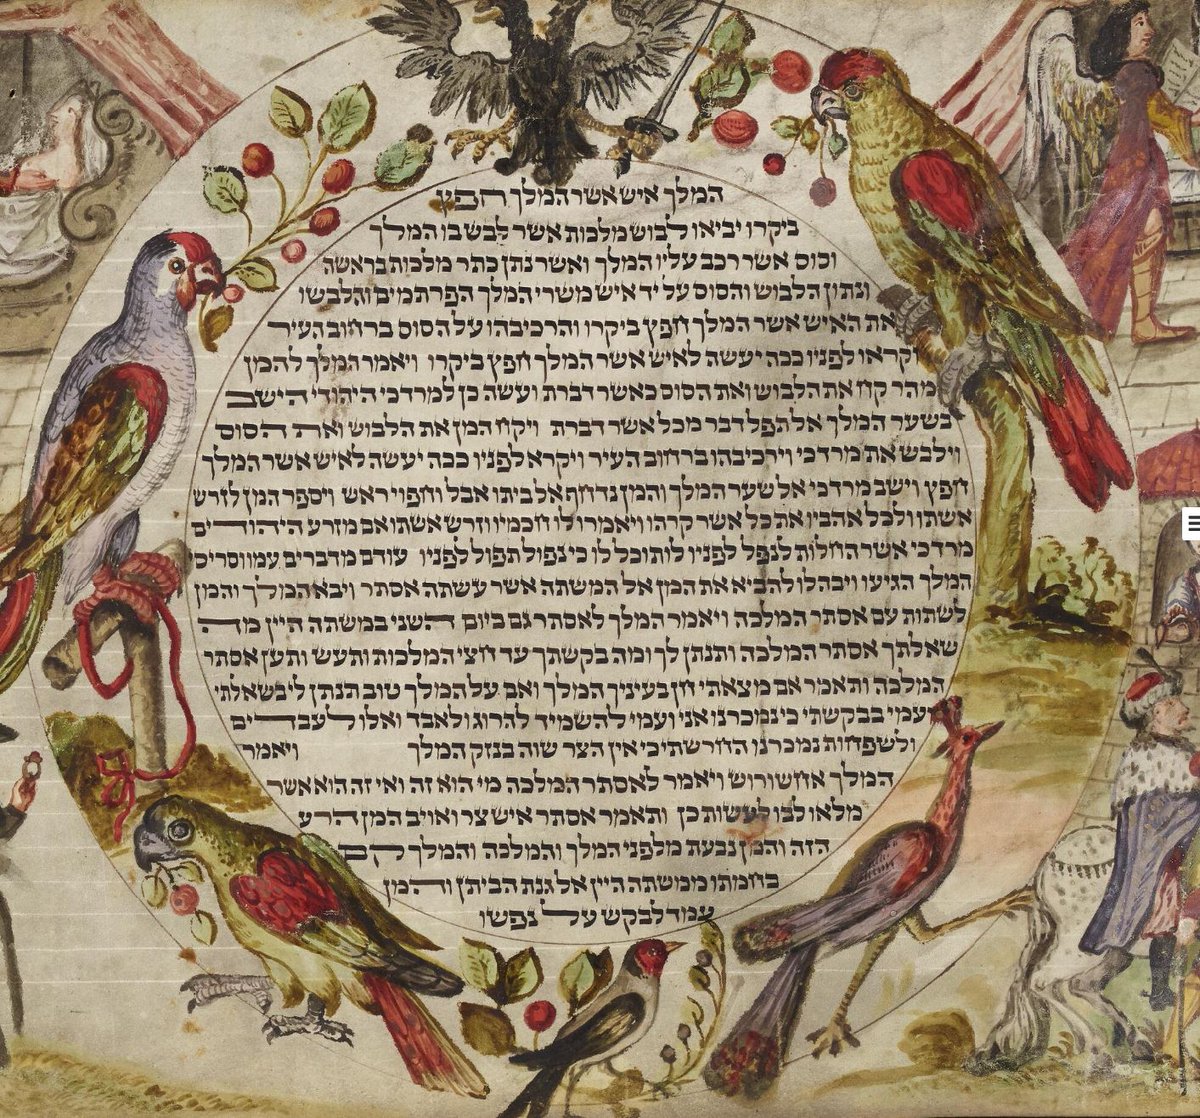 המלך איש אשר המלך חפץ
ביקרו יביאו לבוש מלכות אשר לבש בו המלך
וסוס אשר רכב עליו המלך ואשר נתן כתר מלכות בראשו
ונתון הלבוש והסוס על יד איש משרי המלך הפרתמים והלבשו
את האיש אשר המלך חפץ ביקרו והרכיבהו על הסוס ברחוב העיר
וקראו לפניו ככה יעשה לאיש אשר המלך חפץ ביקרו ויאמר המלך להמן
מהר קח את הלבוש ואת הסוס כאשר דברת ועשה כן למרדכי היהודי הישב
בשער המלך אל תפל דבר מכל אשר דברת ויקח המן את הלבוש ואת הסוס
וילבש את מרדכי וירכיבהו ברחוב העיר ויקרא לפניו ככה יעשה לאיש אשר המלך
חפץ וישב מרדכי אל שער המלך והמן נדחף אל ביתו אבל וחפוי ראש ויספר המן לזרש
אשתו ולכל אהביו את כל אשר קרהו ויאמרו לו חכמיו וזרש אשתו אם מזרע היהודים
מרדכי אשר החלות לנפל לפניו לא תוכל לו כי נפול תפול לפניו עודם מדברים עמו וסריסי
המלך הגיעו ויבהלו להביא את המן אל המשתה אשר עשתה אסתר ויבא המלך והמן
לשתות עם אסתר המלכה ויאמר המלך לאסתר גם ביום השני במשתה היין מה
שאלתך אסתר המלכה ותנתן לך ומה בקשתך עד חצי המלכות ותעש ותען אסתר
המלכה ותאמר אם מצאתי חן בעיניך המלך ואם על המלך טוב תנתן לי בשאלתי
ועמי בבקשתי כי נמכרנו אני ועמי להשמיד להרוג ולאבד ואלו לעבדים
ולשפחות נמכרנו החרשתי כי אין הצר שוה בנזק המלך ויאמר
המלך אחשורוש ויאמר לאסתר המלכה מי הוא זה ואי זה הוא אשר
מלאו לבו לעשות כן ותאמר אסתר איש צר ואויב המן הרע
הזה והמן נבעת מלפני המלך והמלכה והמלך קם
בחמתו ממשתה היין אל גנת הביתן והמן
עמד לבקש על נפשו